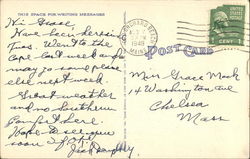 THIS SPACE FOR WRITING MESSAGES
Hi Grace
Have been here since
Tues. Went to the
Cape last week and
may go some place
else next week.
Great weather
and no Southern
Comfort here
Hope to see you
soon
POST CARD
1948
MAINE
Miss Grace Mack
14 Washington Ave
Chelsea
Mass